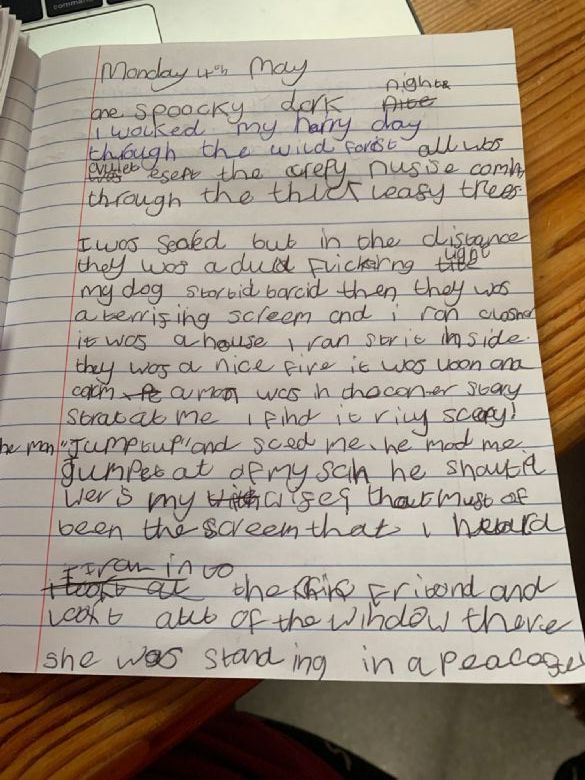 Monday 4th May
one spoocky dark nights
i wolked my harry day
through the wild forist all was
esept the crepy nusise comin
through the thick leasy trees.
I was scaled but in the distance
they was a duld flickering light
my dog startid barcid then they was
a terrising screem and i ran closher
it was a house i ran strit inside.
they was a nice fire it was woon and
calm a man was in the coner story
strat at me i find it rily scary!
he man "Jumptup" and sced me. he mad me
jumpet at of my scin he shoutid
wers my that must of
been the screem that i heard
I ran in to
the frirond and
lookt atut of the window there
she was standing in a peacose